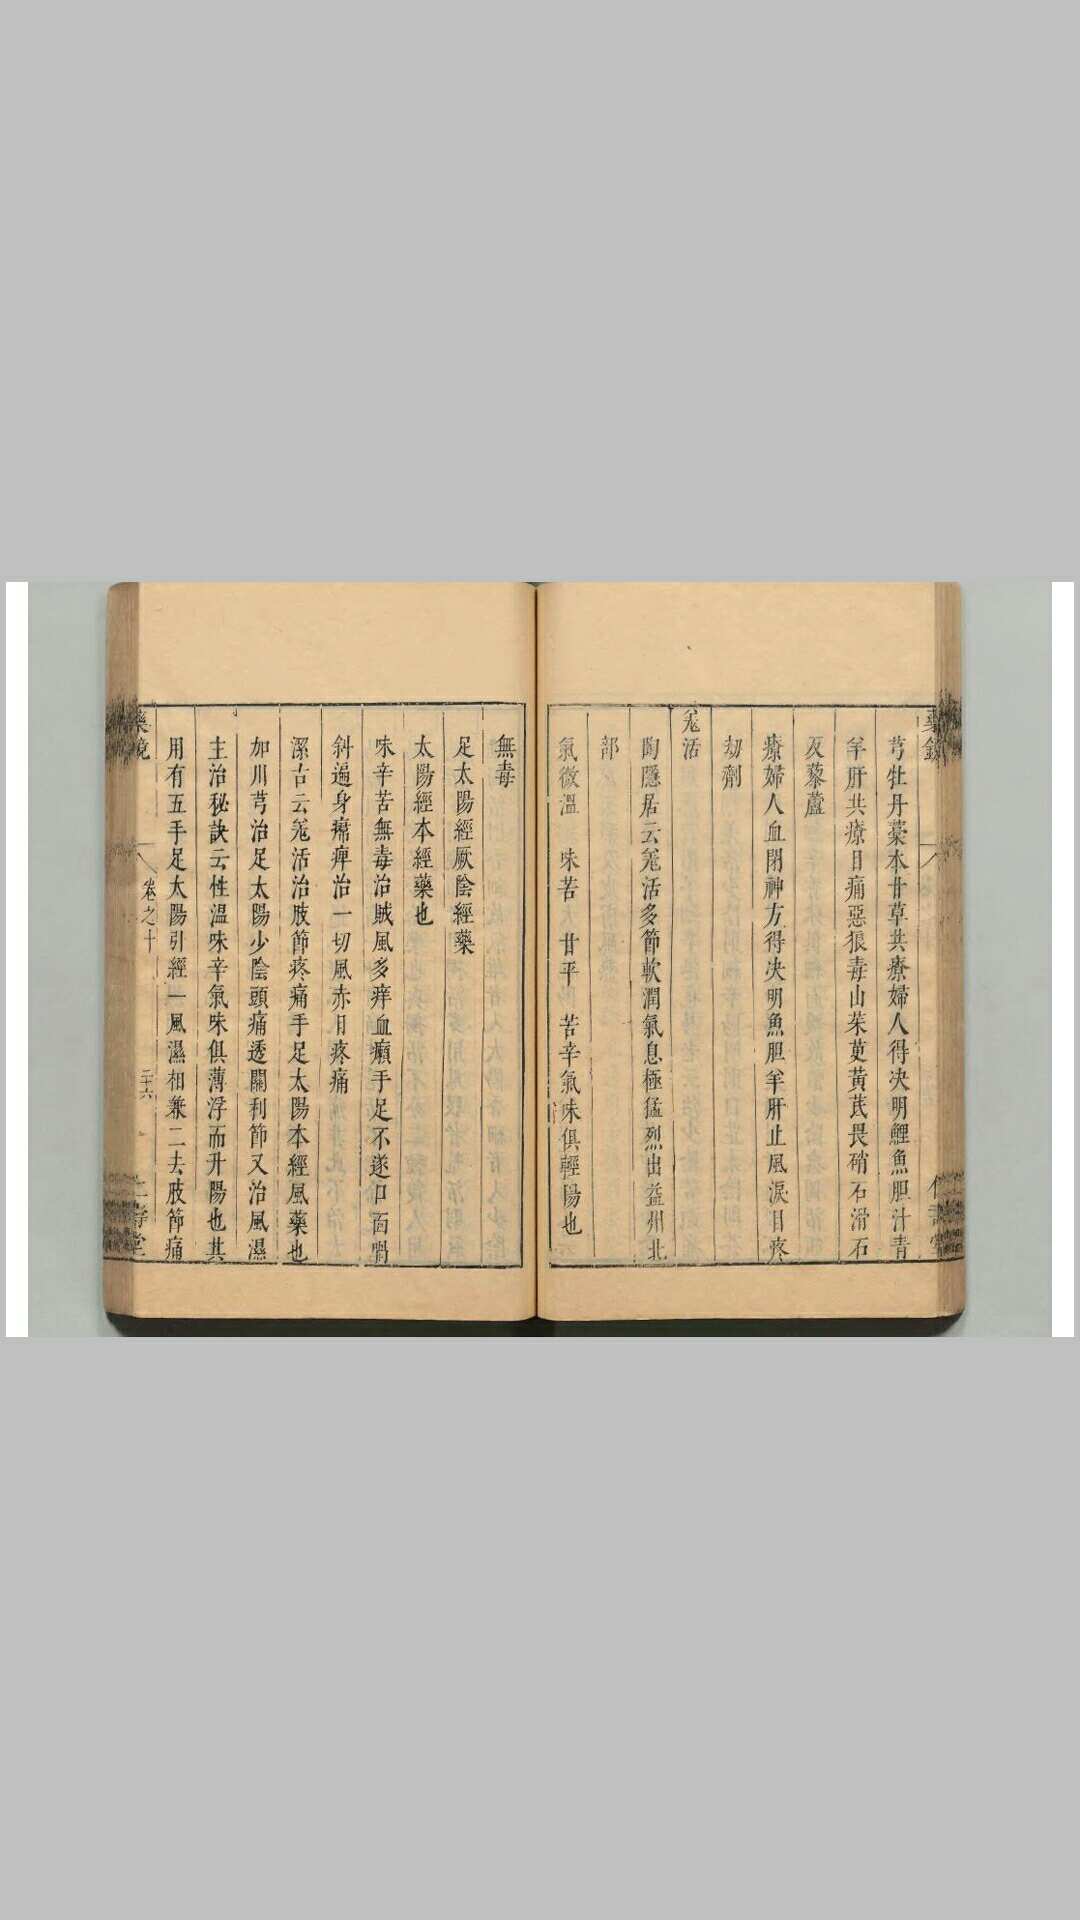 芎牡丹藁本甘草共療婦人得决明鯉魚胆汁青
羊肝共療目痛惡狼毒山茱萸黃芪畏硝石滑石
反藜蘆
療婦人血閉神方得决明魚胆羊肝止風淚目疼
劫劑
羌活
陶隱居云羌活多節軟潤氣息極猛烈出益州北
部
氣微溫 味苦 甘平 苦辛氣味俱輕陽也
無毒
足太陽經厥陰經藥
太陽經本經藥也
味辛苦無毒治賊風多痒血癩手足不遂口面喎
斜遍身㾯痺治一切風赤目疼痛
潔古云羌活治肢節疼痛手足太陽本經風藥也
加川芎治足太陽少陰頭痛透關利節又治風濕
主治秘訣云性溫味辛氣味俱薄浮而升陽也其
用有五手足太陽引經一風濕相兼二去肢節痛
藥鏡 卷之十 二十六 仁壽堂